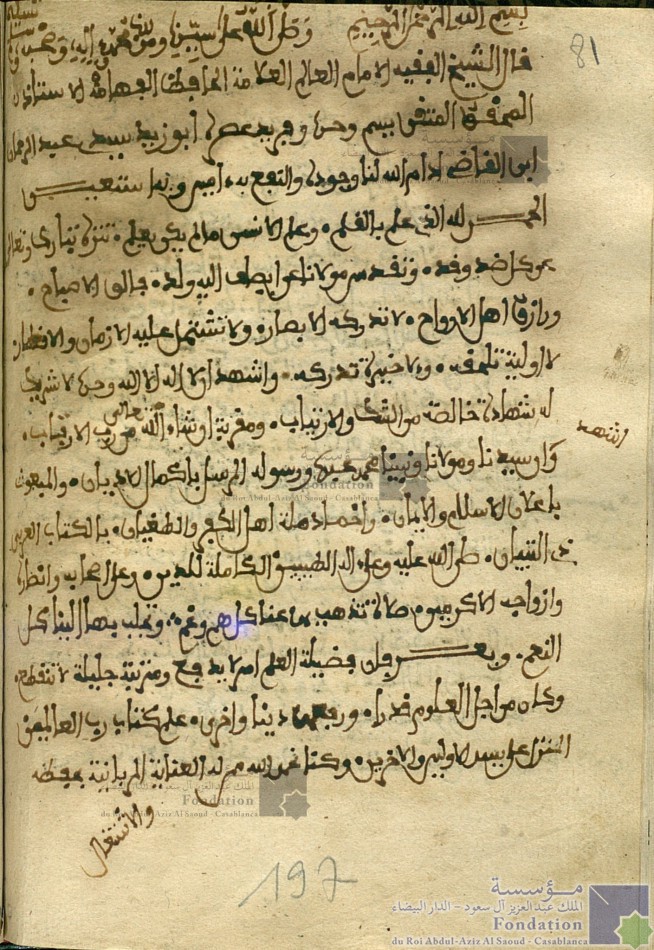 بسم الله الرحمن الرحيم وصلى الله على سيدنا ومولانا محمد وآله وصحبه وسلم تسليما
81
قال الشيخ الفقيه الامام العالم العلامة الحافظ الفهامة الاستاذ
المحقق المتقن نسيم وحده وفريد عصره أبو زيد سيدي عبد الرحمان
ابن القاضي ادام الله لنا وجوده والنفع به ءامين وبه استعين
الحمد لله الذي علم بالقلم وعلم الانسن مالم يكن يعلم تنزه تبارك وتعالى
عن كل ضد وند وتقدس مولانا عن ان يضاف اليه ولد خالق الاصباح
ورازق اهل الارواح لا تدركه الابصار ولا تشتمل عليه الازمان والاقطار
لا اولية تلحقه ولا خبرة تدركه واشهد ان لا اله الا الله وحده لا شريك
له شهادة خالصة من الشك والارتياب ومقربة ان شاء الله تعالى من رب الارباب
اشهد
وان سيدنا ومولانا ونبينا محمد عبده ورسوله المرسل باكمال الاديان والمبعوث
باعلان الاسلام والايمان واخماد ملة اهل الكفر والطغيان بالكتاب العزيز
ذي التبيان صلى الله عليه وعلى اله الطيبين الكاملة للدين وعلى اصحابه وانصاره
وازواجه الاكرمين صلاة تذهب بها عنا كل هم وغم وتجلب بها الينا كل
النعم وبعد فان فضيلة العلم امر لا يدفع ومزية جليلة لا تنقطع
وكان من اجل العلوم قدرا وارفعها دينا واخرى علم كتاب رب العالمين
المنزل على سيد الاولين والاخرين وكنا نحن لله من له العناية الربانية بحفظه
والاشتغال
197
مؤسسة
الملك عبد العزيز آل سعود - الدار البيضاء
Fondation
du Roi Abdul-Aziz Al Saoud - Casablanca